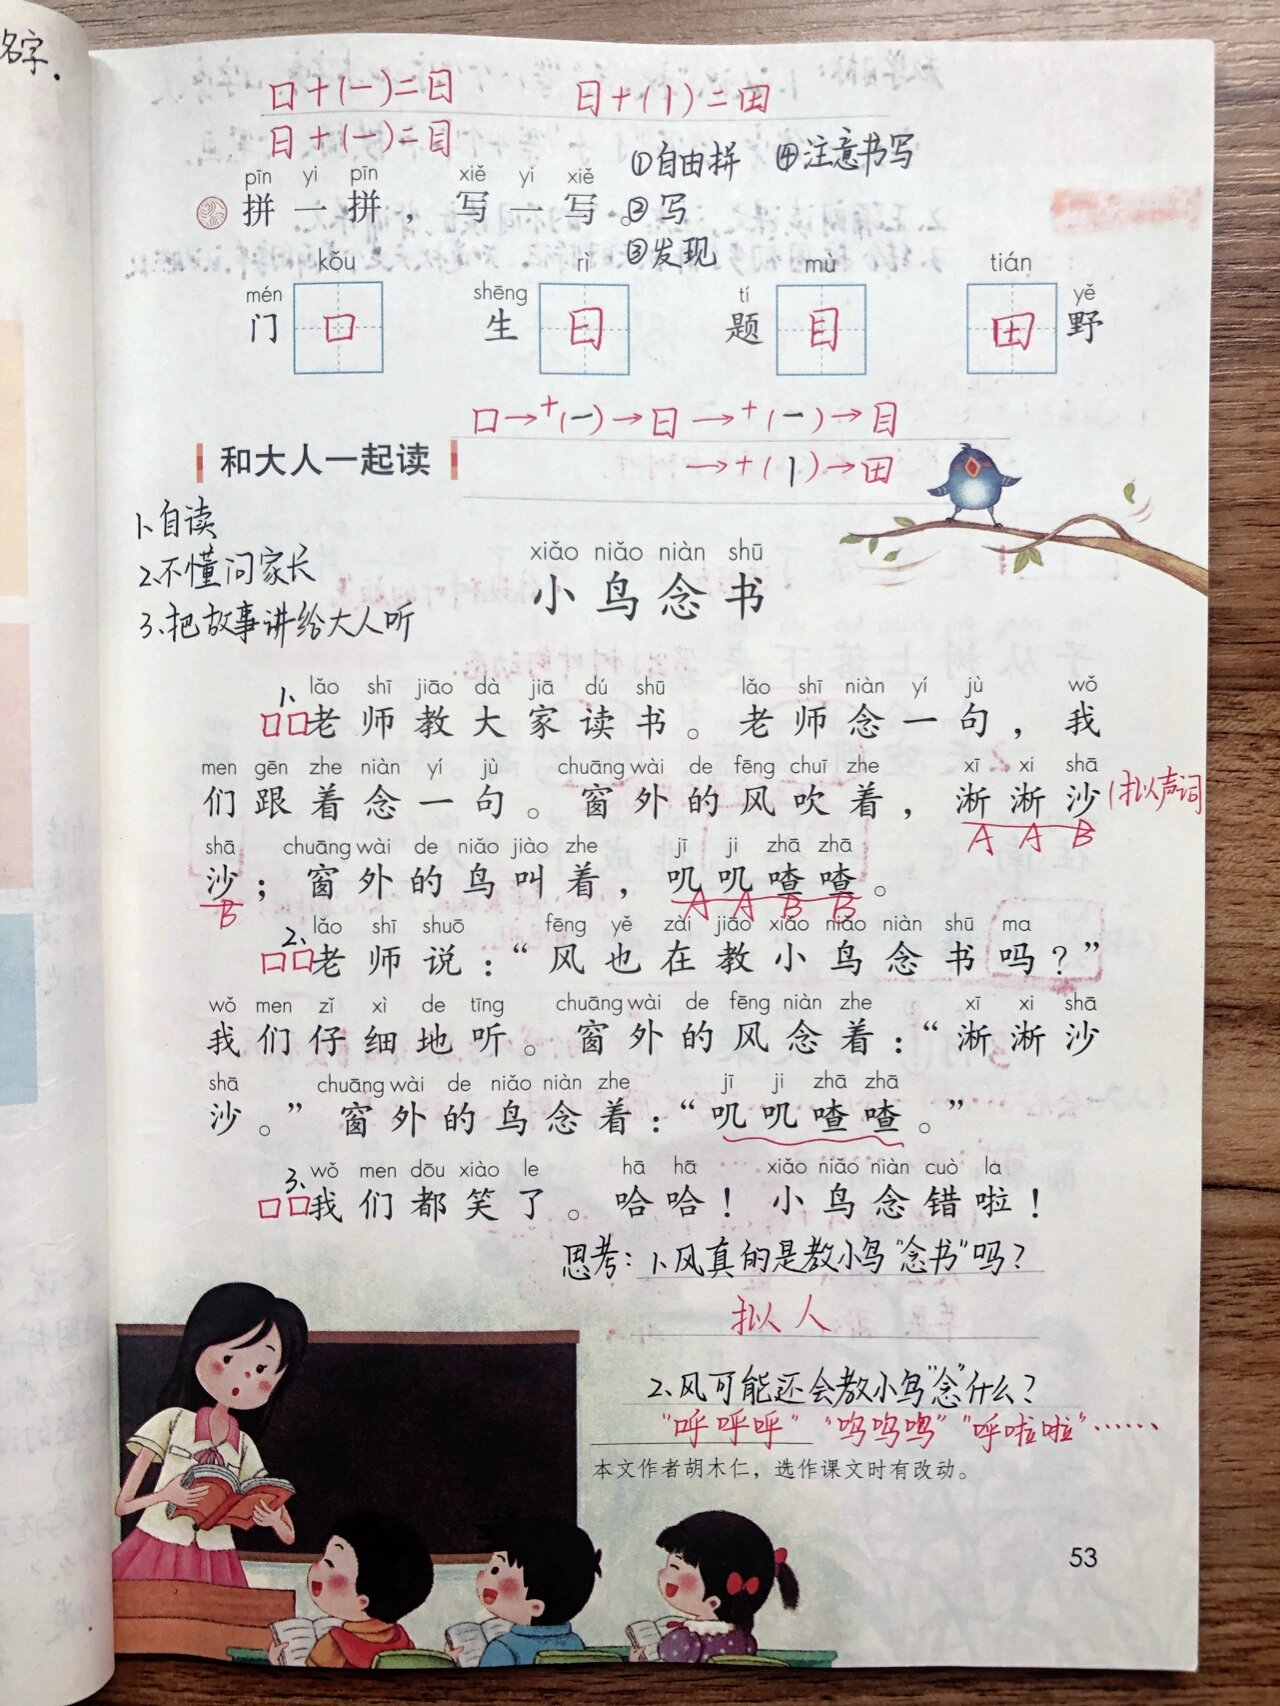 名字.
口+(一)=日 日+(丨)=田
日+(一)=目
①自由拼 ④注意书写
pīn yi pīn xiě yi xiě
拼一拼，写一写。 ②写
③发现
kǒu rì mù tián
mén shēng tí yě
门 口 生 日 题 目 田 野
口→+(一)→日→+(一)→目
→+(丨)→田
和大人一起读
1、自读
2、不懂问家长
3、把故事讲给大人听
xiǎo niǎo niàn shū
小鸟念书
1、 lǎo shī jiāo dà jiā dú shū lǎo shī niàn yí jù wǒ
口口老师教大家读书。老师念一句，我
men gēn zhe niàn yí jù chuāng wài de fēng chuī zhe xī xi shā
们跟着念一句。窗外的风吹着，淅淅沙 (拟声词
A A B
shā chuāng wài de niǎo jiào zhe jī ji zhā zhā
沙；窗外的鸟叫着，叽叽喳喳。
B A A B B
2、 lǎo shī shuō fēng yě zài jiāo xiǎo niǎo niàn shū ma
口口老师说：“风也在教小鸟念书吗？”
wǒ men zǐ xì de tīng chuāng wài de fēng niàn zhe xī xi shā
我们仔细地听。窗外的风念着：“淅淅沙
shā chuāng wài de niǎo niàn zhe jī ji zhā zhā
沙。”窗外的鸟念着：“叽叽喳喳。”
3、 wǒ men dōu xiào le hā hā xiǎo niǎo niàn cuò la
口口我们都笑了。哈哈！小鸟念错啦！
思考：1、风真的是教小鸟“念书”吗？
拟人
2、风可能还会教小鸟“念”什么？
“呼呼呼” “呜呜呜” “呼啦啦”……
本文作者胡木仁，选作课文时有改动。
53